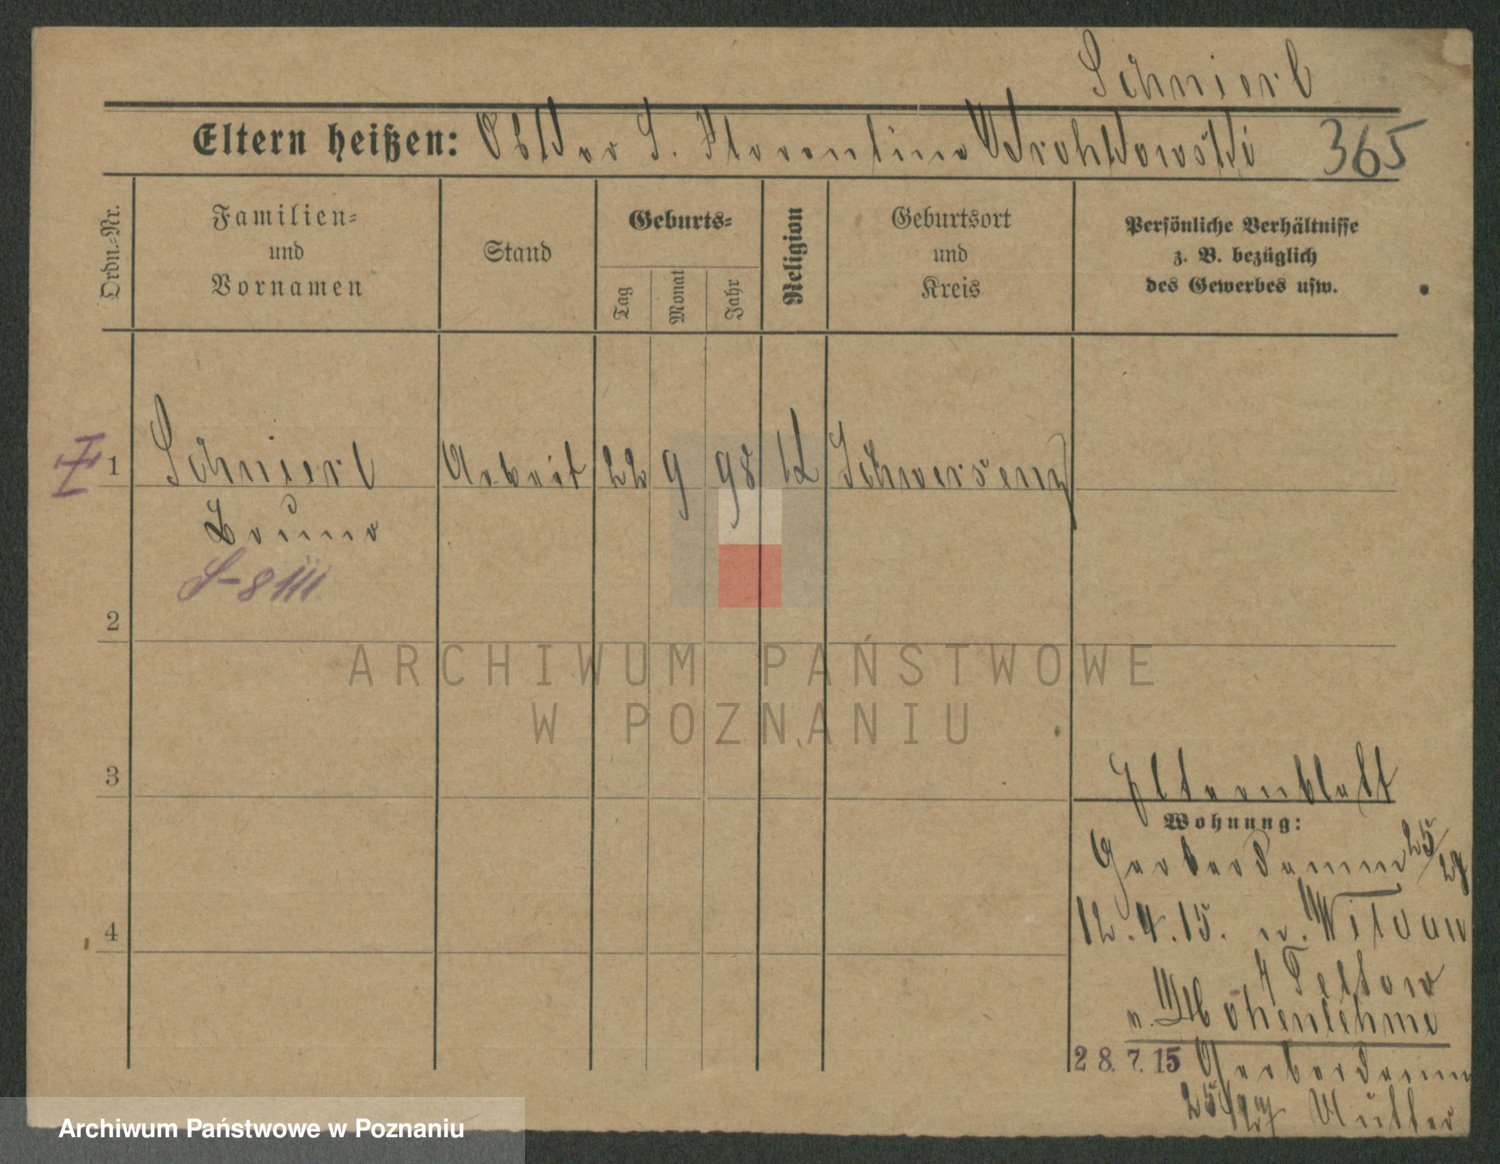 Schnierl
Eltern heißen: S. Florentine 365
Ordn.-Nr.
Familien-
und
Vornamen
Stand
Geburts-
Tag
Monat
Jahr
Religion
Geburtsort
und
Kreis
Persönliche Verhältnisse
z. B. bezüglich
des Gewerbes usw.
1 Schnierl Arbeit 22 9 98 K Schwersenz
Bruno
S-8111
2
ARCHIWUM PAŃSTWOWE
W POZNANIU
3
Elternblatt
Wohnung:
Gerberdamm 25/29
12.4.15. n. Wildau
Teltow
4
n. Hohenlehme
28.7.15 Gerberdamm
25/29 Mutter
Archiwum Państwowe w Poznaniu